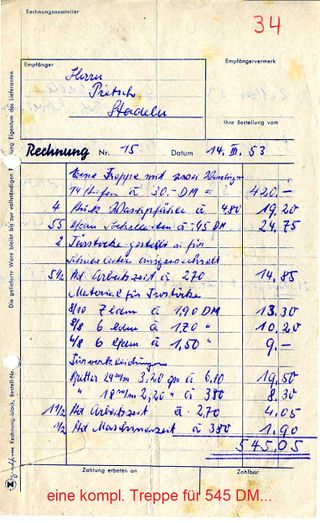 Rechnungsaussteller
34
Empfänger
Empfängervermerk
Herrn
Pietsch
Stadeln
Ihre Bestellung vom
Rechnung Nr. 15 Datum 14. III. 53
Eine Treppe mit zwei
14 Stufen à 30.- DM = 420.-
4 Stück à 4.80 19.20
55 à -.45 DM 24.75
2 Türstöcke gestellt u. für
5 1/2 Std Arbeitszeit à 2.70 14.85
Material für Türstöcke
8/10 7 à 1.90 DM 13.30
8/8 6 à 1.70 " 10.20
6/8 6 à 1.50 " 9.-
Türverkleidungen
Bretter 24 m/m 3.20 qm à 6.10 19.50
" 18 m/m 2.20 " à 3.80 8.30
1 1/2 Std Arbeitszeit à 2.70 4.05
1/2 Std Maschinenzeit à 3.80 1.90
545.05
Zahlung erbeten an
Zahlbar
eine kompl. Treppe für 545 DM...
Die gelieferte Ware bleibt bis zur vollständigen Eigentum des Lieferanten
Rechnung-block, Bestell-Nr.